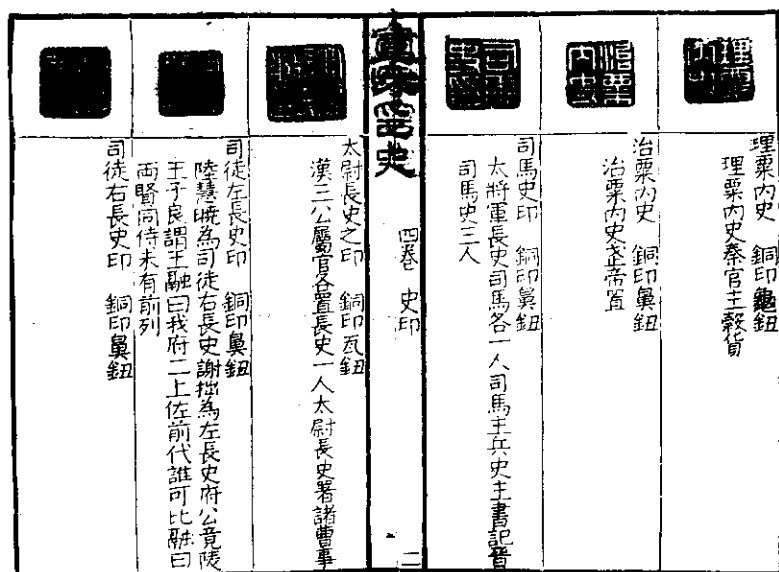 理粟内史
理粟内史 銅印龜鈕
理粟内史秦官主穀貨
治粟内史
治粟内史 銅印鼻鈕
治粟内史武帝置
司馬史印
司馬史印 銅印鼻鈕
太將軍長史司馬各一人司馬主兵史主書記晉
司馬史三人
宣和印史
四卷 史印
二
太尉長史之印 銅印瓦鈕
漢三公屬官各置長史一人太尉長史署諸曹事
司徒左長史印 銅印鼻鈕
陸慧曉為司徒右長史謝拙為左長史府公竟陵
王子良謂王融曰我府二上佐前代誰可比融曰
両賢同侍未有前列
司徒右長史印 銅印鼻鈕